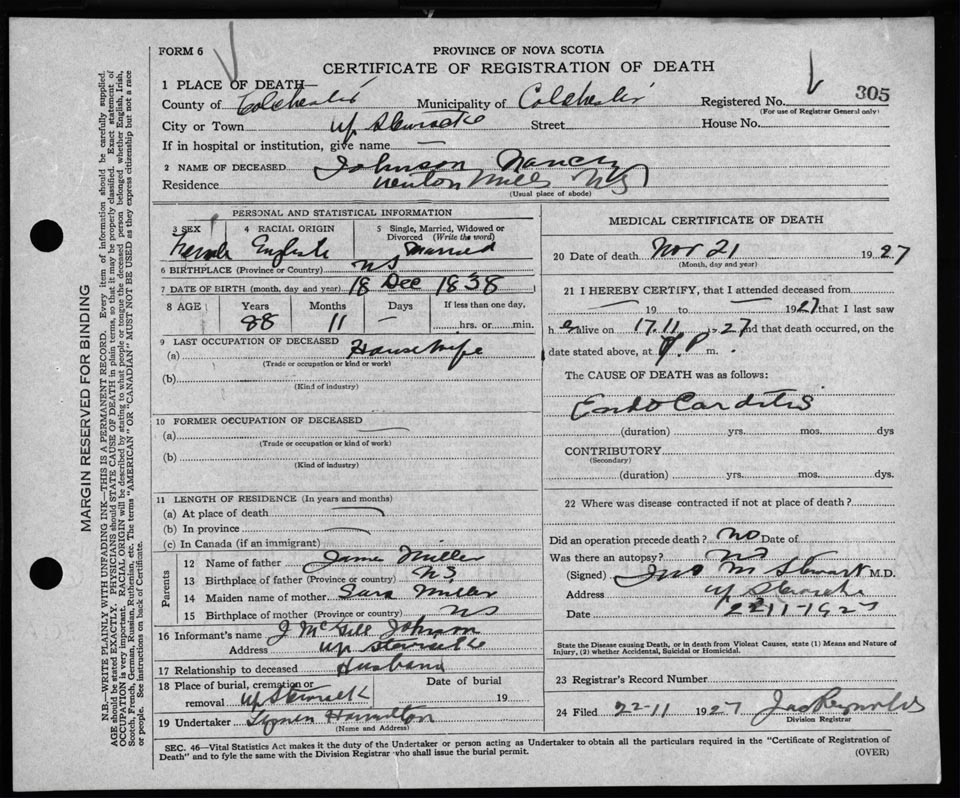 FORM 6
PROVINCE OF NOVA SCOTIA
CERTIFICATE OF REGISTRATION OF DEATH
305
1 PLACE OF DEATH—
County of Colchester Municipality of Colchester Registered No.
(For use of Registrar General only)
City or Town Up Stewiacke Street House No.
If in hospital or institution, give name —
2 NAME OF DECEASED Johnson Nancy
Residence Newton Mills N.S.
(Usual place of abode)
PERSONAL AND STATISTICAL INFORMATION
3 SEX 4 RACIAL ORIGIN 5 Single, Married, Widowed or Divorced (Write the word)
Female English Married
6 BIRTHPLACE (Province or Country) NS
7 DATE OF BIRTH (month, day and year) 18 Dec 1838
8 AGE Years Months Days If less than one day,
88 11 — hrs. or min.
9 LAST OCCUPATION OF DECEASED
(a) Housewife
(Trade or occupation or kind or work)
(b)
(Kind of industry)
10 FORMER OCCUPATION OF DECEASED
(a)
(Trade or occupation or kind of work)
(b)
(Kind of industry)
11 LENGTH OF RESIDENCE (In years and months)
(a) At place of death
(b) In province
(c) In Canada (if an immigrant)
Parents
12 Name of father James Miller
13 Birthplace of father (Province or country) NS
14 Maiden name of mother Sara Miller
15 Birthplace of mother (Province or country) NS
16 Informant's name J McGill Johnson
Address Up Stewiacke
17 Relationship to deceased Husband
18 Place of burial, cremation or removal Up Stewiacke Date of burial 19
19 Undertaker Hamilton
(Name and Address)
MEDICAL CERTIFICATE OF DEATH
20 Date of death Nov 21 1927
(Month, day and year)
21 I HEREBY CERTIFY, that I attended deceased from
— 19 to — 1927 that I last saw
h er alive on 17.11 1927 and that death occurred, on the
date stated above, at P. m.
The CAUSE OF DEATH was as follows:
Endo Carditis
(duration) yrs. mos. dys
CONTRIBUTORY
(Secondary)
(duration) yrs. mos. dys.
22 Where was disease contracted if not at place of death?
Did an operation precede death? No Date of
Was there an autopsy? No
(Signed) Jno M Stewart M.D.
Address Up Stewiacke
Date 22-11-1927
State the Disease causing Death, or in death from Violent Causes, state (1) Means and Nature of Injury, (2) whether Accidental, Suicidal or Homicidal.
23 Registrar's Record Number
24 Filed 22-11 1927 Jas Reynolds
Division Registrar
SEC. 46—Vital Statistics Act makes it the duty of the Undertaker or person acting as Undertaker to obtain all the particulars required in the "Certificate of Registration of
Death" and to fyle the same with the Division Registrar who shall issue the burial permit.
(OVER)
MARGIN RESERVED FOR BINDING
N.B.—WRITE PLAINLY WITH UNFADING INK—THIS IS A PERMANENT RECORD. Every item of information should be carefully supplied.
AGE should be stated EXACTLY. PHYSICIANS should STATE CAUSE OF DEATH in plain terms, so that it may be properly classified. Exact statement of
OCCUPATION is very important. RACIAL ORIGIN will be described by stating to what people or tongue the deceased person belonged whether English, Irish,
Scotch, French, German, Russian, Ruthenian, etc. The terms "AMERICAN" OR "CANADIAN" MUST NOT BE USED as they express citizenship but not a race
or people. See instructions on back of Certificate.